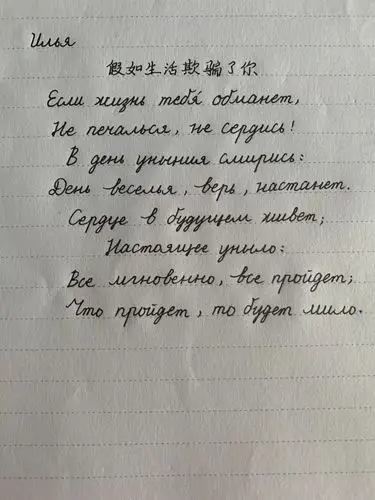 Илья
假如生活欺骗了你
Если жизнь тебя́ обманет,
Не печалься, не сердись!
В день уныния смирись:
День веселья, верь, настанет.
Сердце в будущем живет;
Настоящее уныло:
Все мгновенно, все пройдет;
Что пройдет, то будет мило.